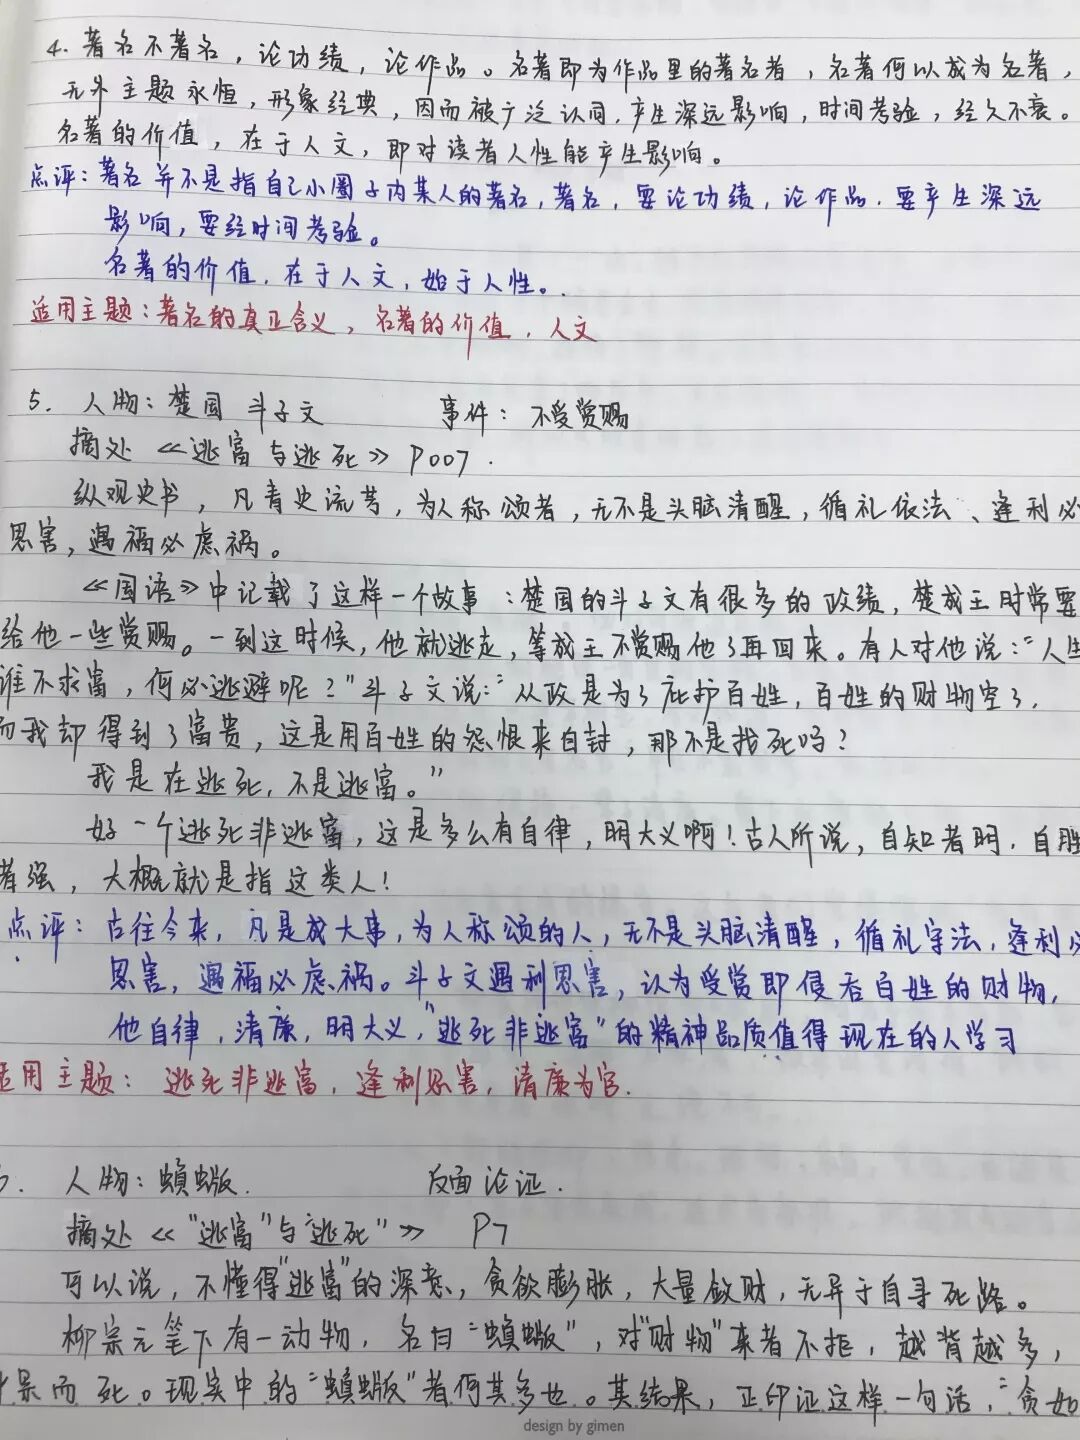 4. 著名不著名，论功绩，论作品。名著即为作品里的著名者，名著何以成为名著，
无外主题永恒，形象经典，因而被广泛认同，产生深远影响，时间考验，经久不衰。
名著的价值，在于人文，即对读者人性能产生影响。
点评：著名并不是指自己小圈子内某人的著名，著名，要论功绩，论作品，要产生深远
影响，要经时间考验。
名著的价值，在于人文，始于人性。
适用主题：著名的真正含义，名著的价值，人文
5. 人物：楚国 斗子文 事件：不受赏赐
摘处《逃富与逃死》P007.
纵观史书，凡青史流芳，为人称颂者，无不是头脑清醒，循礼依法、逢利必
思害，遇福必虑祸。
《国语》中记载了这样一个故事：楚国的斗子文有很多的政绩，楚成王时常要
给他一些赏赐。一到这时候，他就逃走，等成王不赏赐他了再回来。有人对他说：“人生
谁不求富，何必逃避呢？”斗子文说：“从政是为了庇护百姓，百姓的财物空了，
而我却得到了富贵，这是用百姓的怨恨来自封，那不是找死吗？
我是在逃死，不是逃富。”
好一个逃死非逃富，这是多么有自律，明大义啊！古人所说，自知者明，自胜
者强，大概就是指这类人！
点评：古往今来，凡是成大事，为人称颂的人，无不是头脑清醒，循礼守法，逢利必
思害，遇福必虑祸。斗子文遇利思害，认为受赏即侵吞百姓的财物，
他自律，清廉，明大义，“逃死非逃富”的精神品质值得现在的人学习
适用主题：逃死非逃富，逢利思害，清廉为官.
人物：蝜蝂. 反面论证.
摘处《“逃富”与“逃死”》 P7
可以说，不懂得“逃富”的深意，贪欲膨胀，大量敛财，无异于自寻死路。
柳宗元笔下有一动物，名曰“蝜蝂”，对“财物”来者不拒，越背越多，
而死。现实中的“蝜蝂”者何其多也。其结果，正印证这样一句话，“贪如
design by gimen